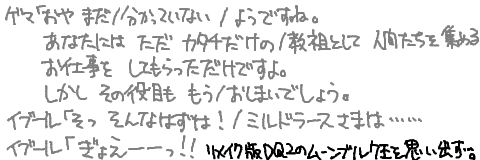 ゲマ「おや まだ/分かっていない/ようですね。
あなたには ただ カタチだけの/教祖として 人間たちを 集める
お仕事を してもらっただけですよ。
しかし その役目も もう/おしまいでしょう。
イブール「そっ そんなはずは!/ミルドラースさまは……
イブール「ぎょえーーっ!! リメイク版DQ2のムーンブルク王を思い出す。